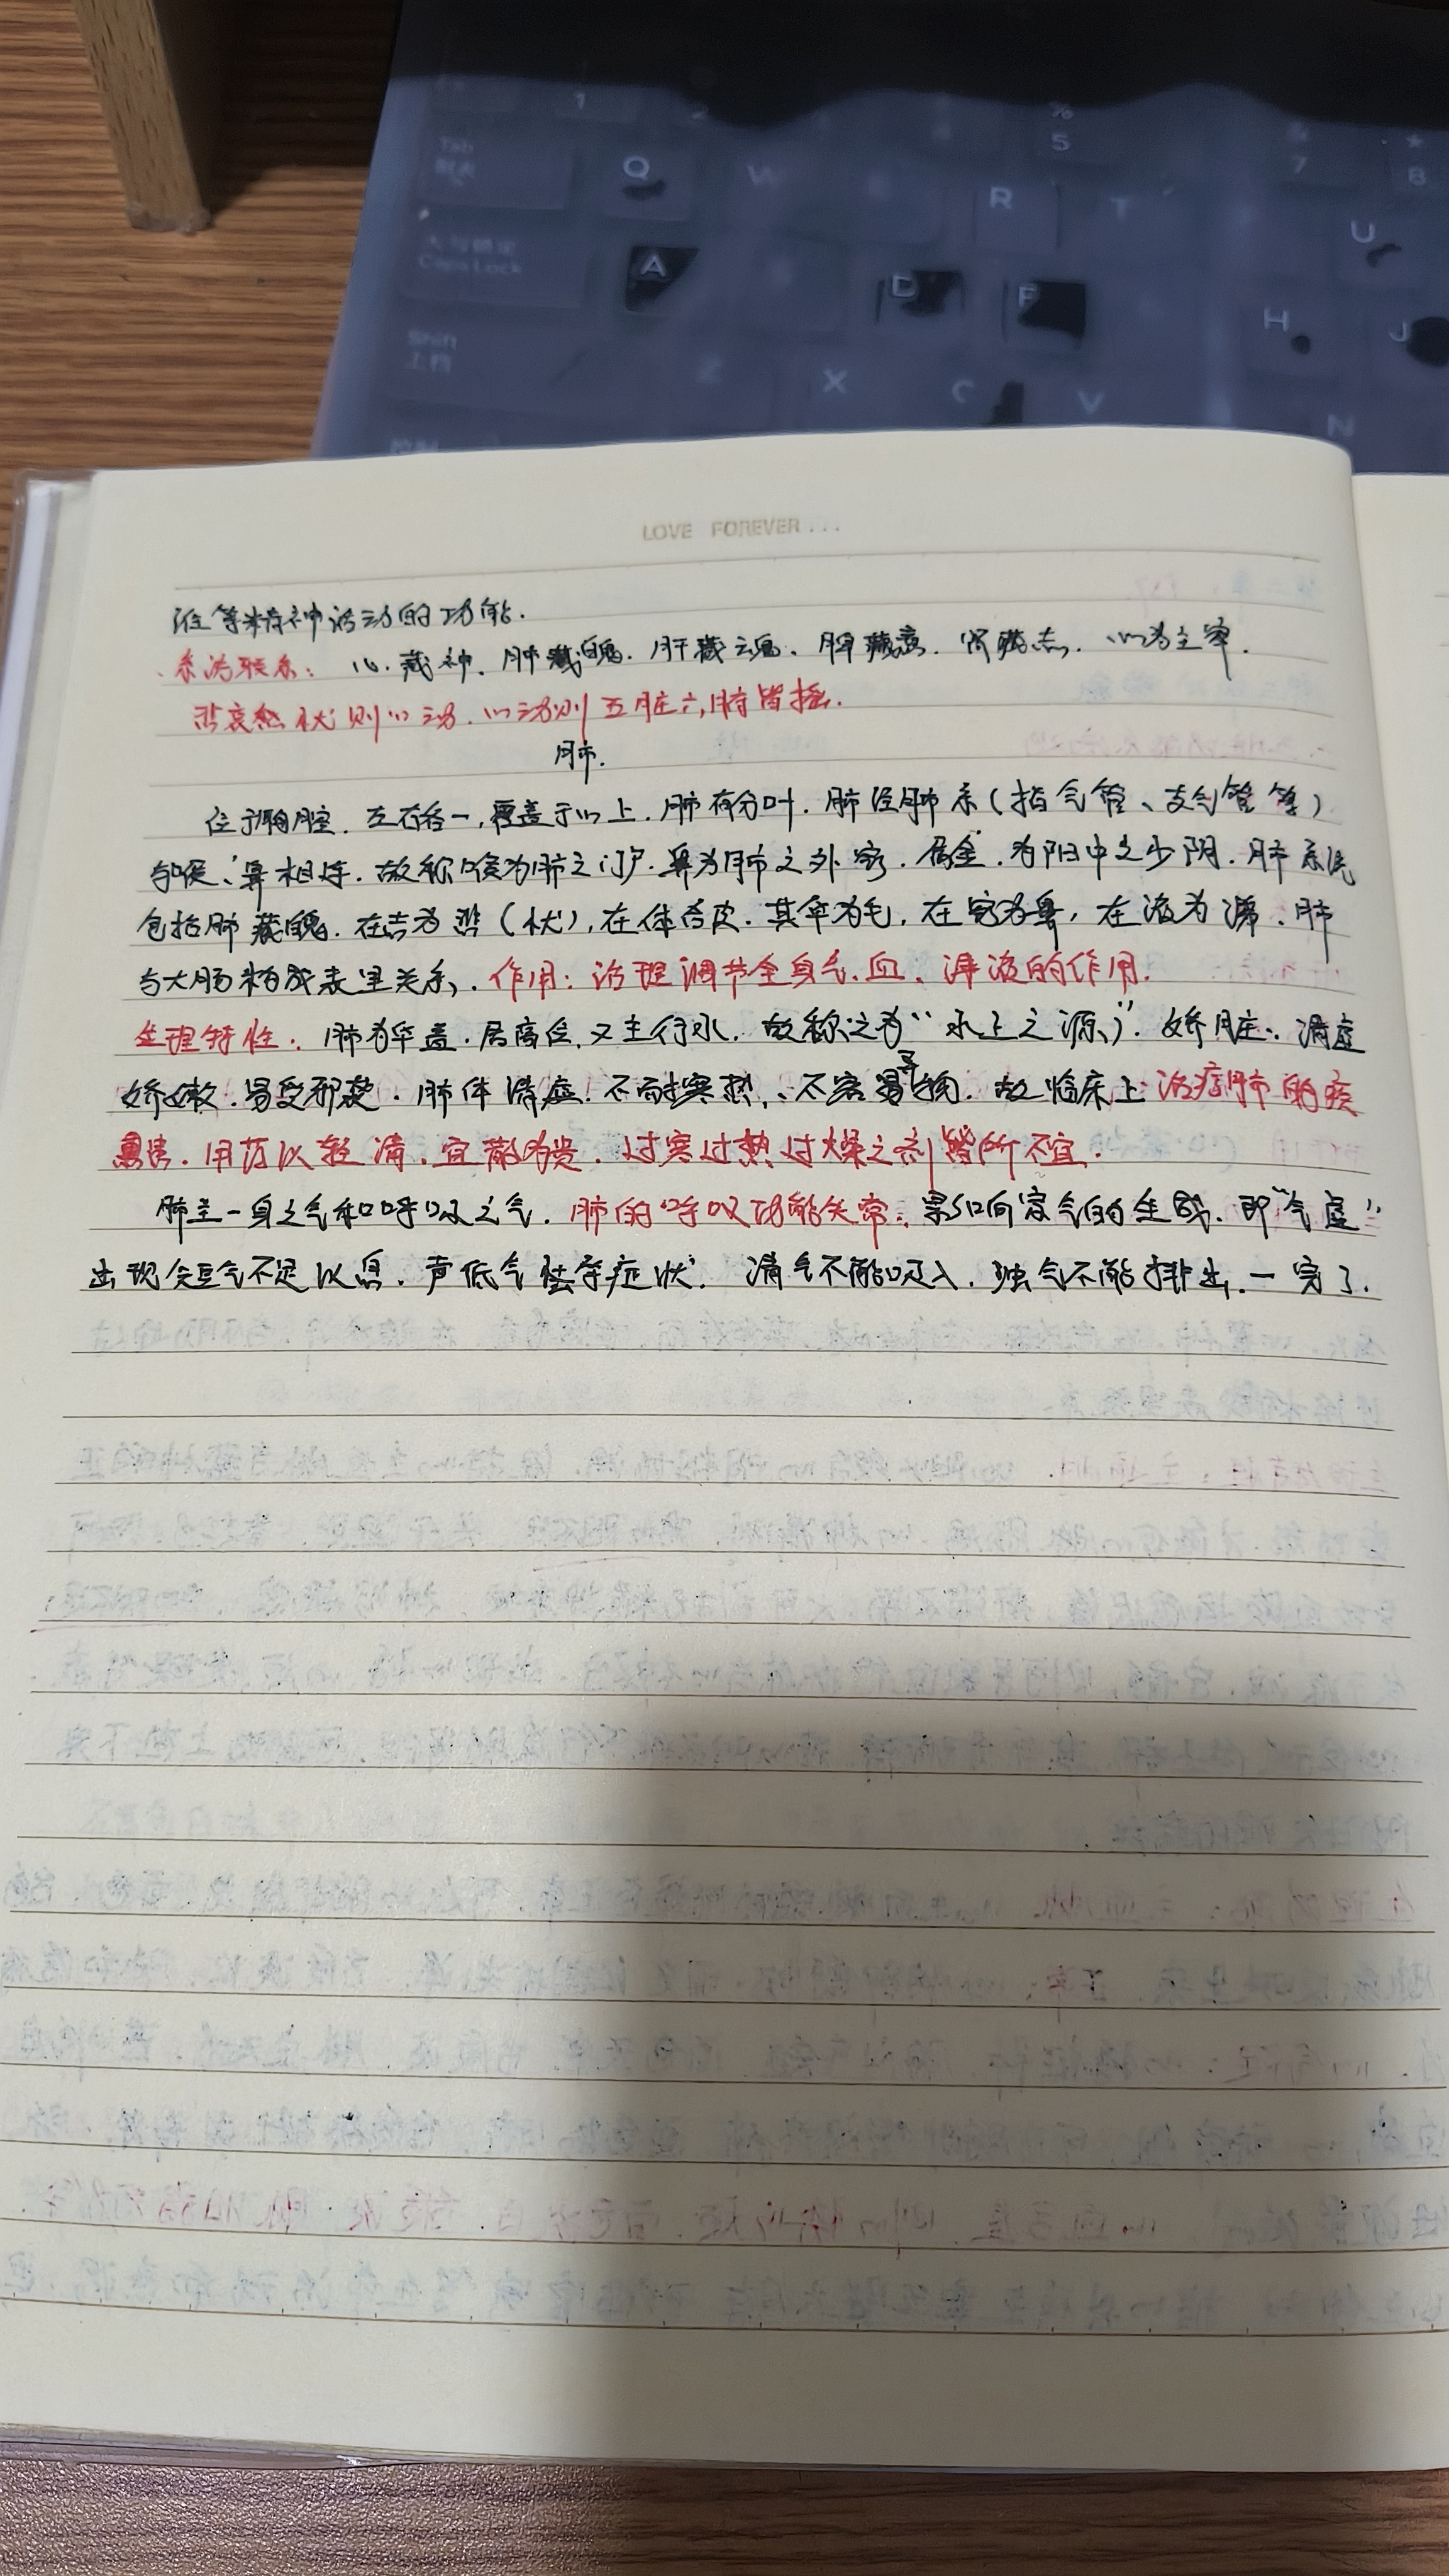 LOVE FOREVER...
维等精神活动的功能.
系统联系: 心藏神. 肺藏魄. 肝藏魂、脾藏意. 肾藏志. 心为主宰.
悲哀愁忧则心动. 心动则五脏六腑皆摇.
肺.
位于胸腔. 左右各一, 覆盖于心上. 肺有分叶. 肺经肺系(指气管、支气管等)
与喉、鼻相连. 故称喉为肺之门户. 鼻为肺之外窍. 属金. 为阳中之少阴. 肺系统
包括肺藏魄. 在志为悲(忧), 在体合皮. 其华为毛, 在窍为鼻, 在液为涕. 肺
与大肠构成表里关系. 作用: 治理调节全身气、血、津液的作用.
生理特性: 肺为华盖. 居高位, 又主行水. 故称之为“水上之源”. 娇脏: 清虚
娇嫩. 易受邪袭. 肺体清虚! 不耐寒热, 不容异物. 故临床上治疗肺的疾
患. 用药以轻清. 宜散为贵. 过寒过热过燥之剂皆所不宜.
肺主一身之气和呼吸之气. 肺的呼吸功能失常: 累影响宗气的生成. 即“气虚”
出现短气不足以息. 声低气怯等症状. 清气不能吸入. 浊气不能排出. 一完了.
Tab
Caps Lock
Shift
上档
1
2
5
7
8
Q
W
R
T
U
A
D
F
H
J
Z
X
C
V
N